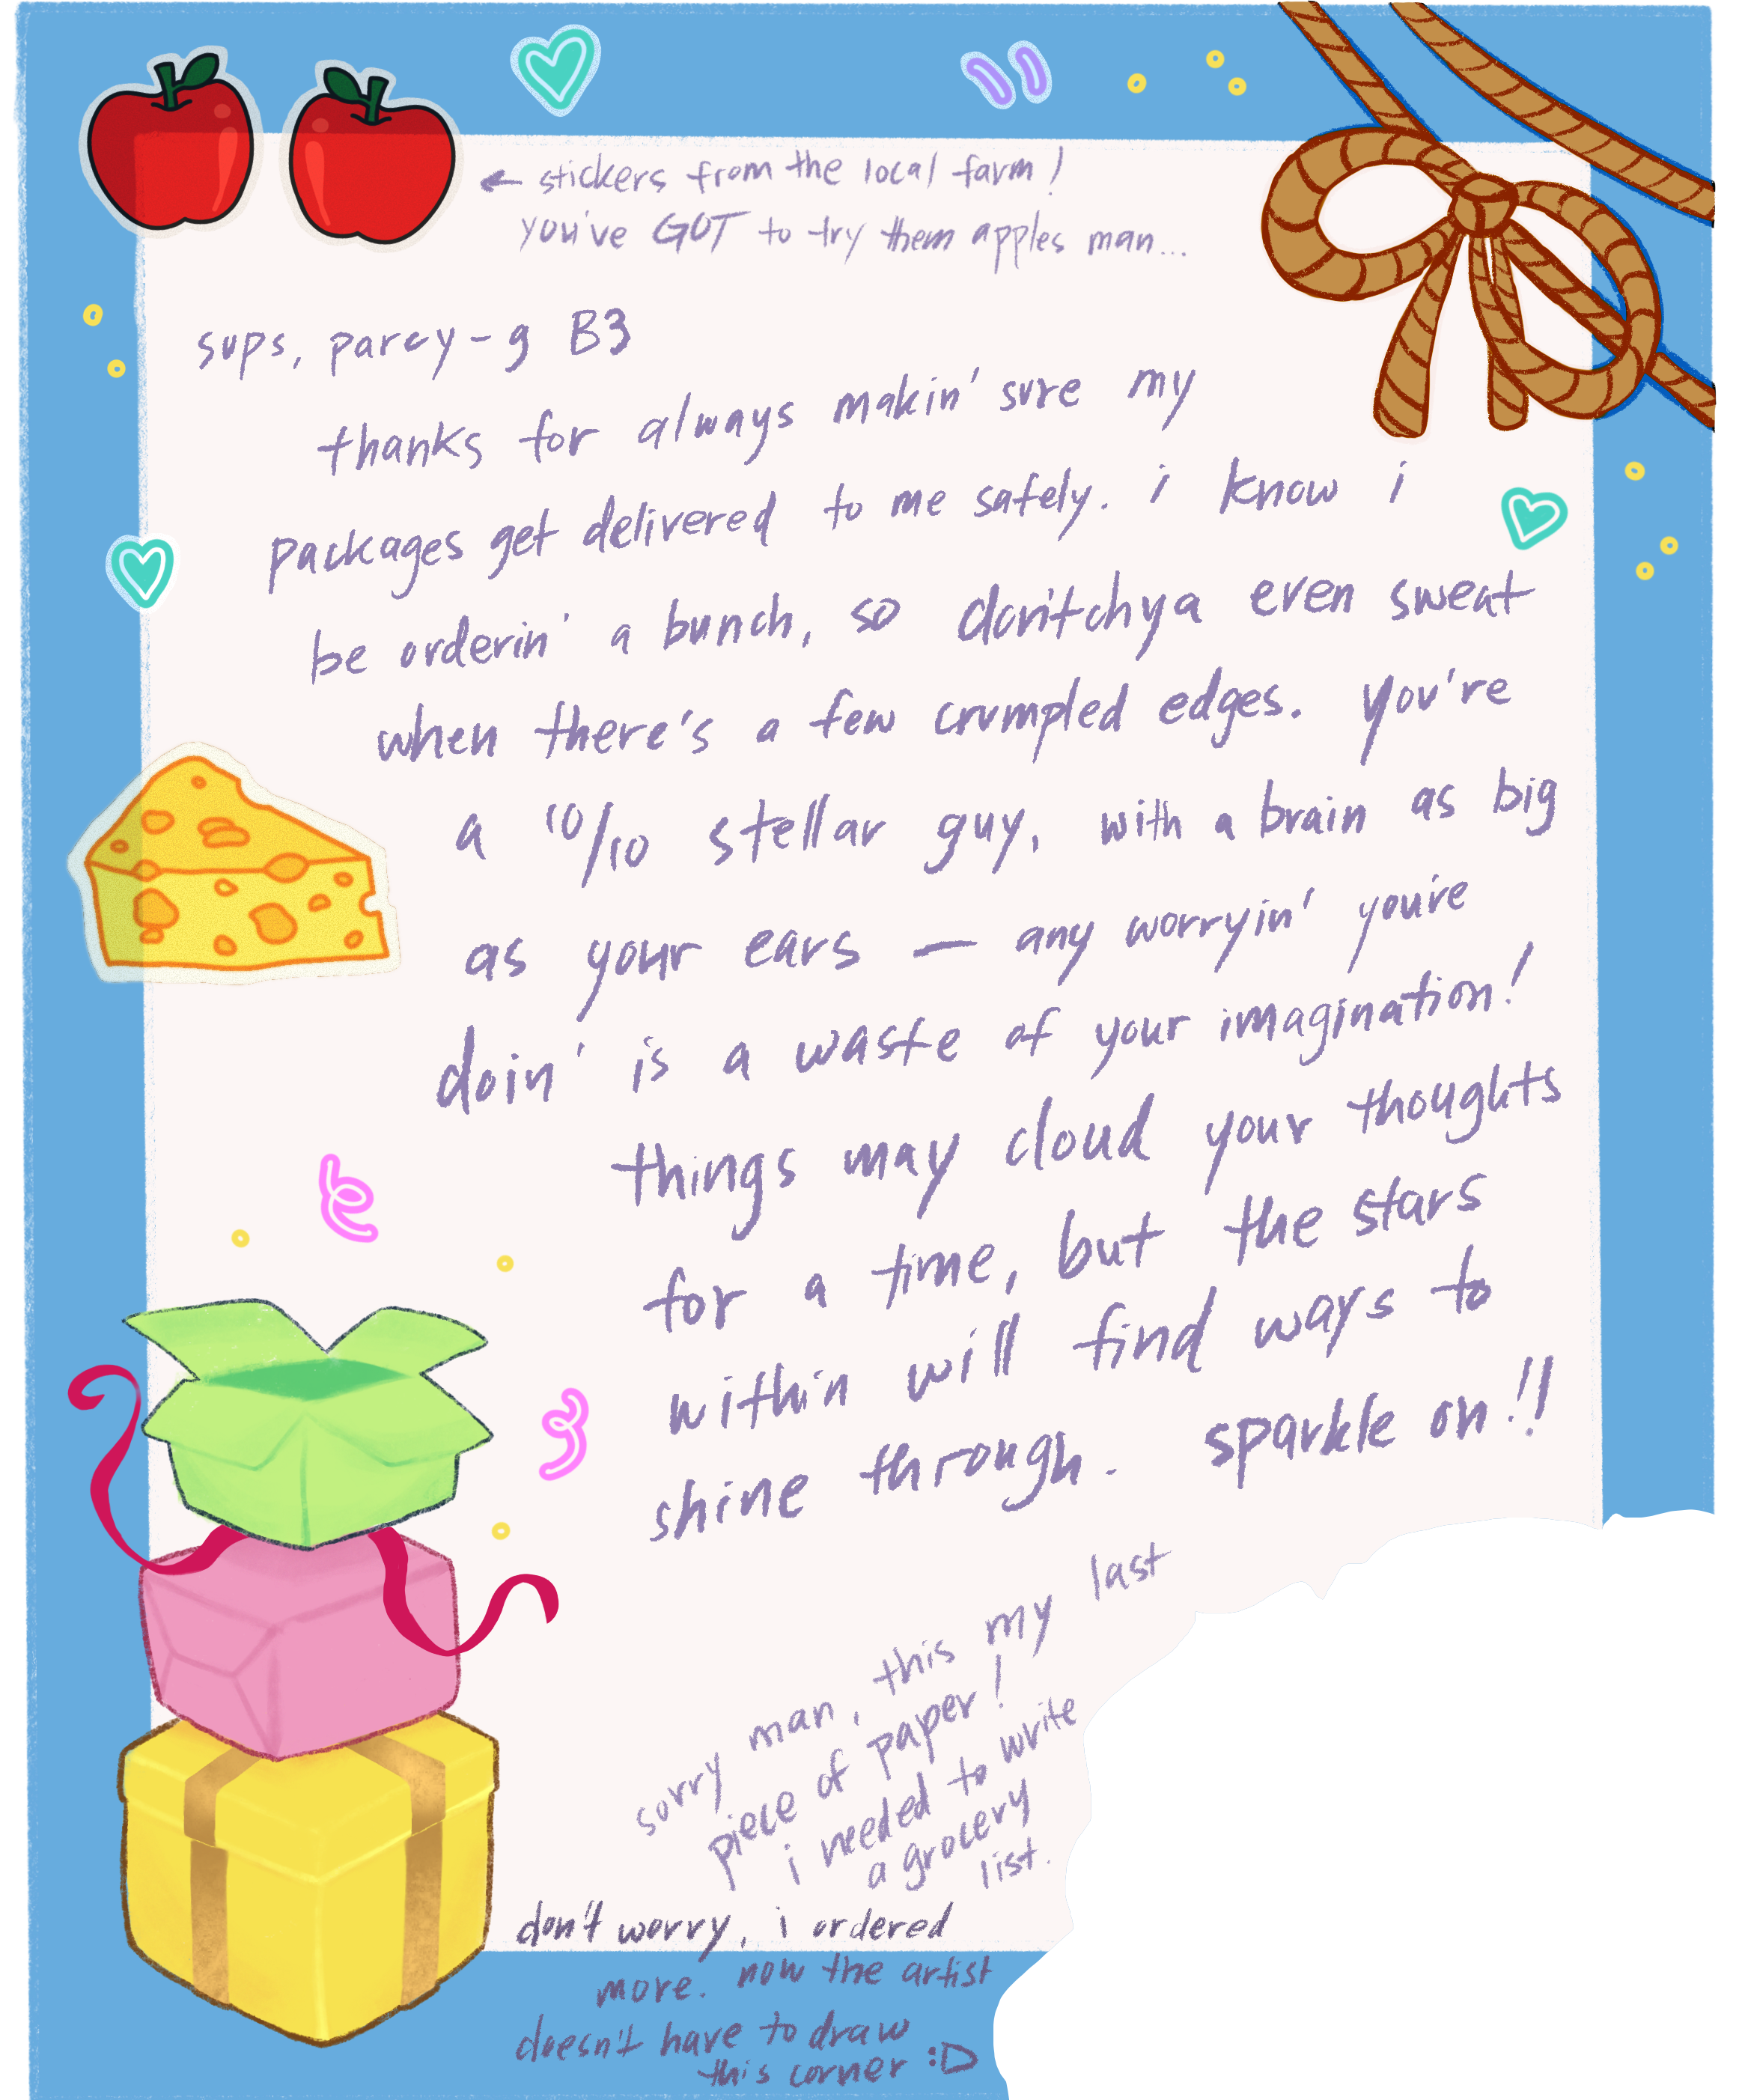 ← stickers from the local farm!
you've GOT to try them apples man...
sups, parcy-g B3
thanks for always makin' sure my
packages get delivered to me safely. i know i
be orderin' a bunch, so don'tchya even sweat
when there's a few crumpled edges. you're
a 10/10 stellar guy, with a brain as big
as your ears — any worryin' you're
doin' is a waste of your imagination!
things may cloud your thoughts
for a time, but the stars
within will find ways to
shine through. sparkle on!!
sorry man, this my last
piece of paper!
i needed to write
a grocery
list.
don't worry, i ordered
more. now the artist
doesn't have to draw
this corner :D